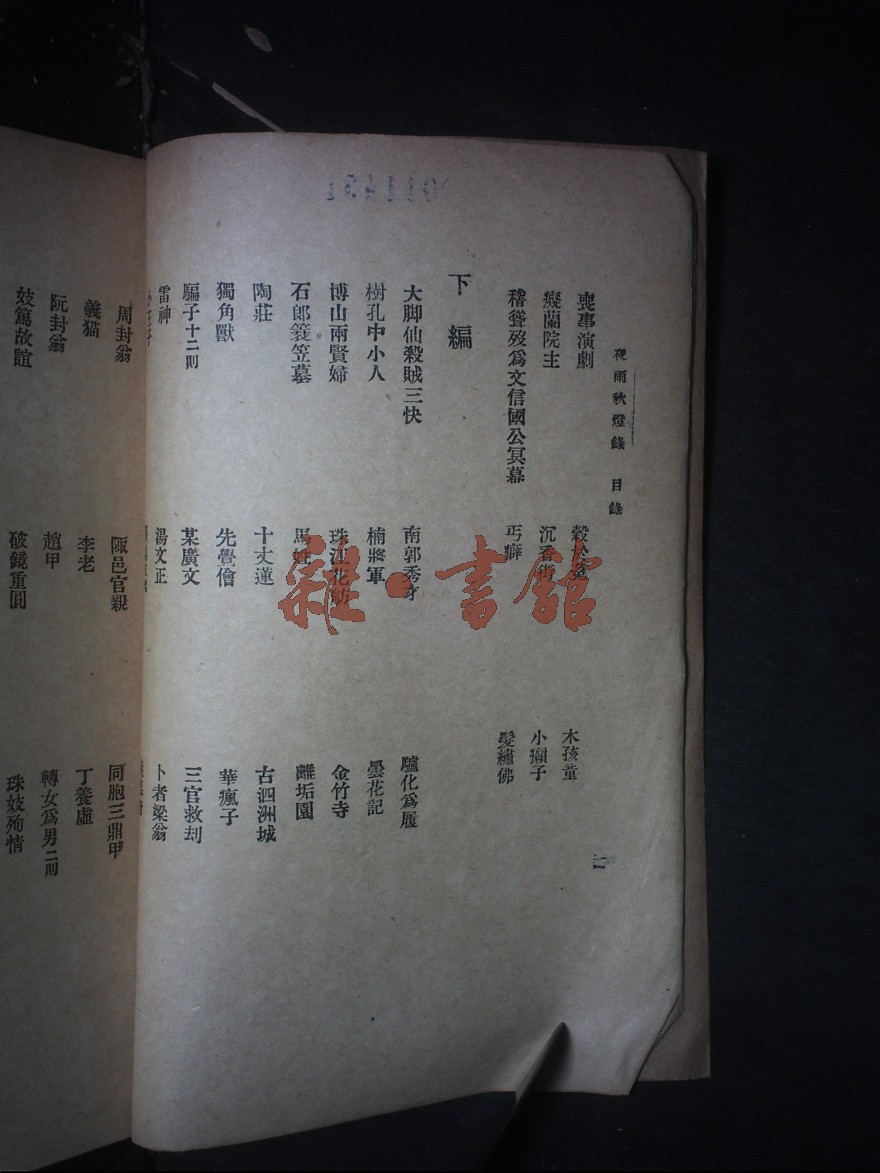 夜雨秋燈錄 目錄
二
喪事演劇 木孩童
癡蘭院主 沉香街 小癩子
稽聳歿爲文信國公冥幕 丐癖 髮繡佛
下編
大脚仙殺賊三快 南郭秀才 驢化爲履
樹孔中小人 楠將軍 曇花記
博山兩賢婦 珠江花舫 金竹寺
石郎簑笠墓 馬 離垢園
陶莊 十丈蓮 古泗洲城
獨角獸 先覺僧 華瘋子
騙子十二則 某廣文 三官救刦
雷神 湯文正 卜者梁翁
周封翁 陬邑官親 同胞三鼎甲
義猫 李老 丁養虛
阮封翁 趙甲 轉女爲男二則
妓篤故誼 破鏡重圓 珠妓殉情
雜·書館
011431